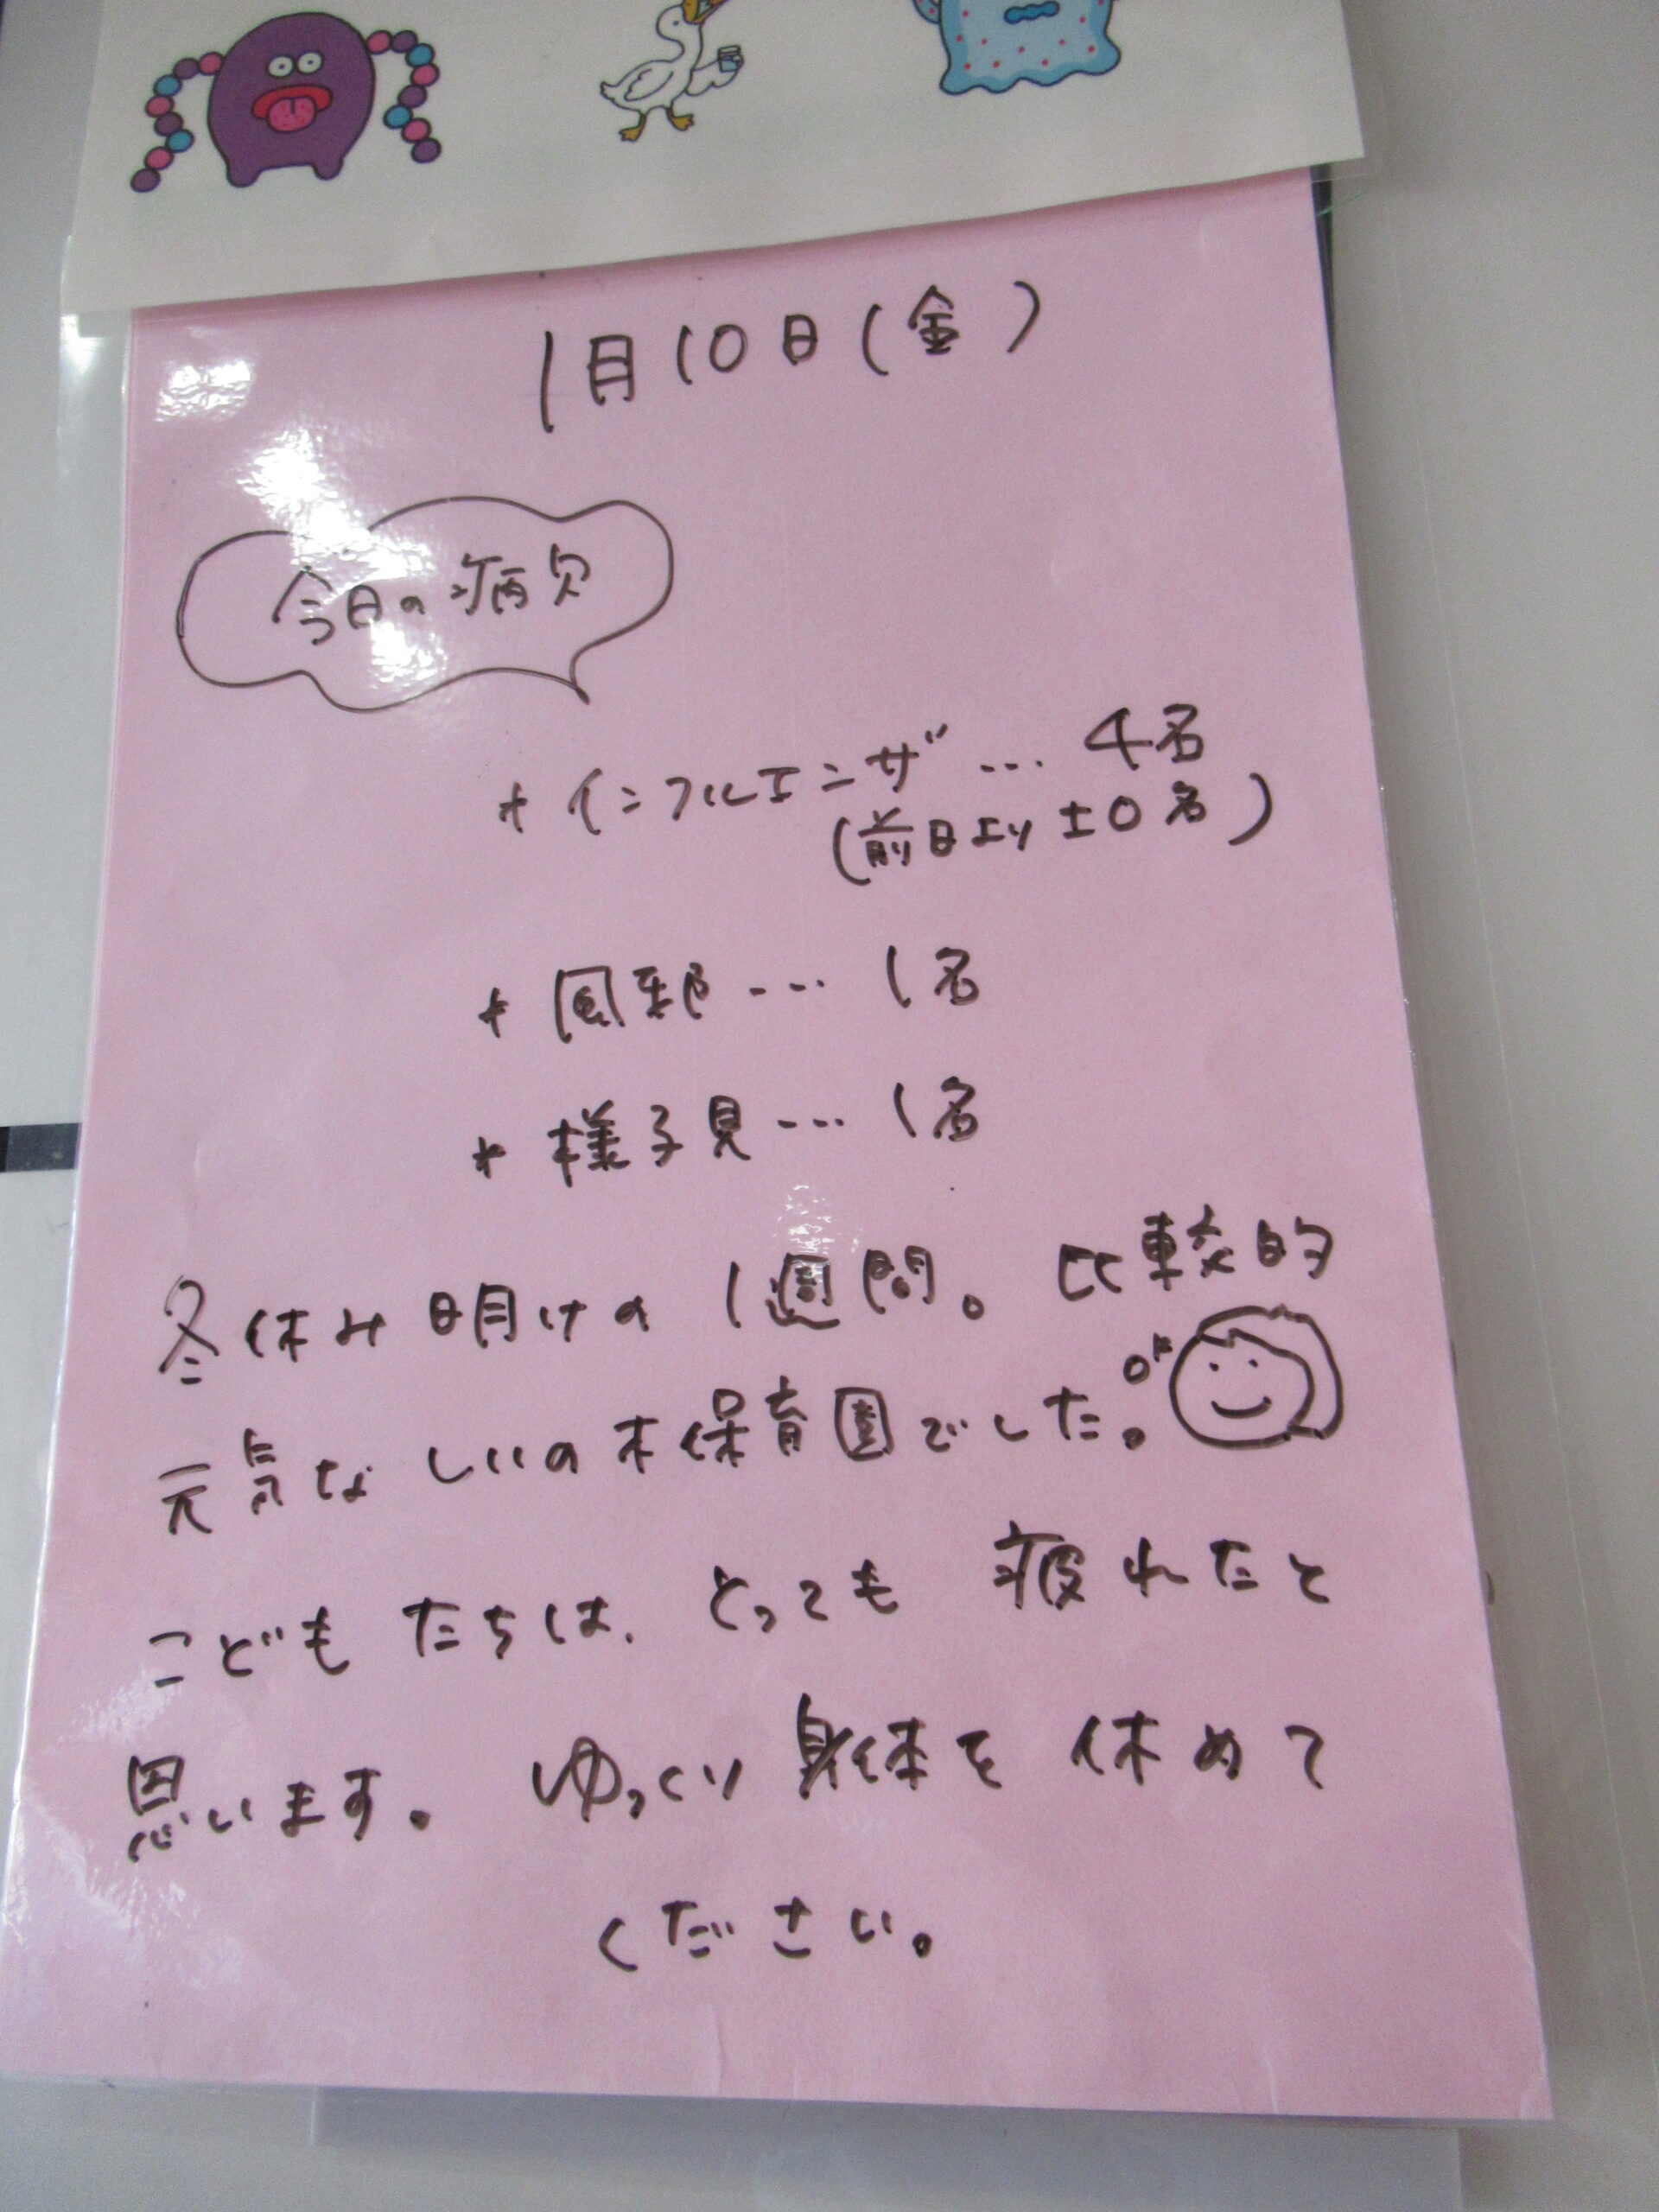 1月10日(金)
今日の病欠
* インフルエンザ … 4名
(前日より±0名)
* 風邪 … 1名
* 様子見 … 1名
冬休み明けの1週間。比較的
元気なしいの木保育園でした。
こどもたちは、とっても疲れたと
思います。ゆっくり身体を休めて
ください。